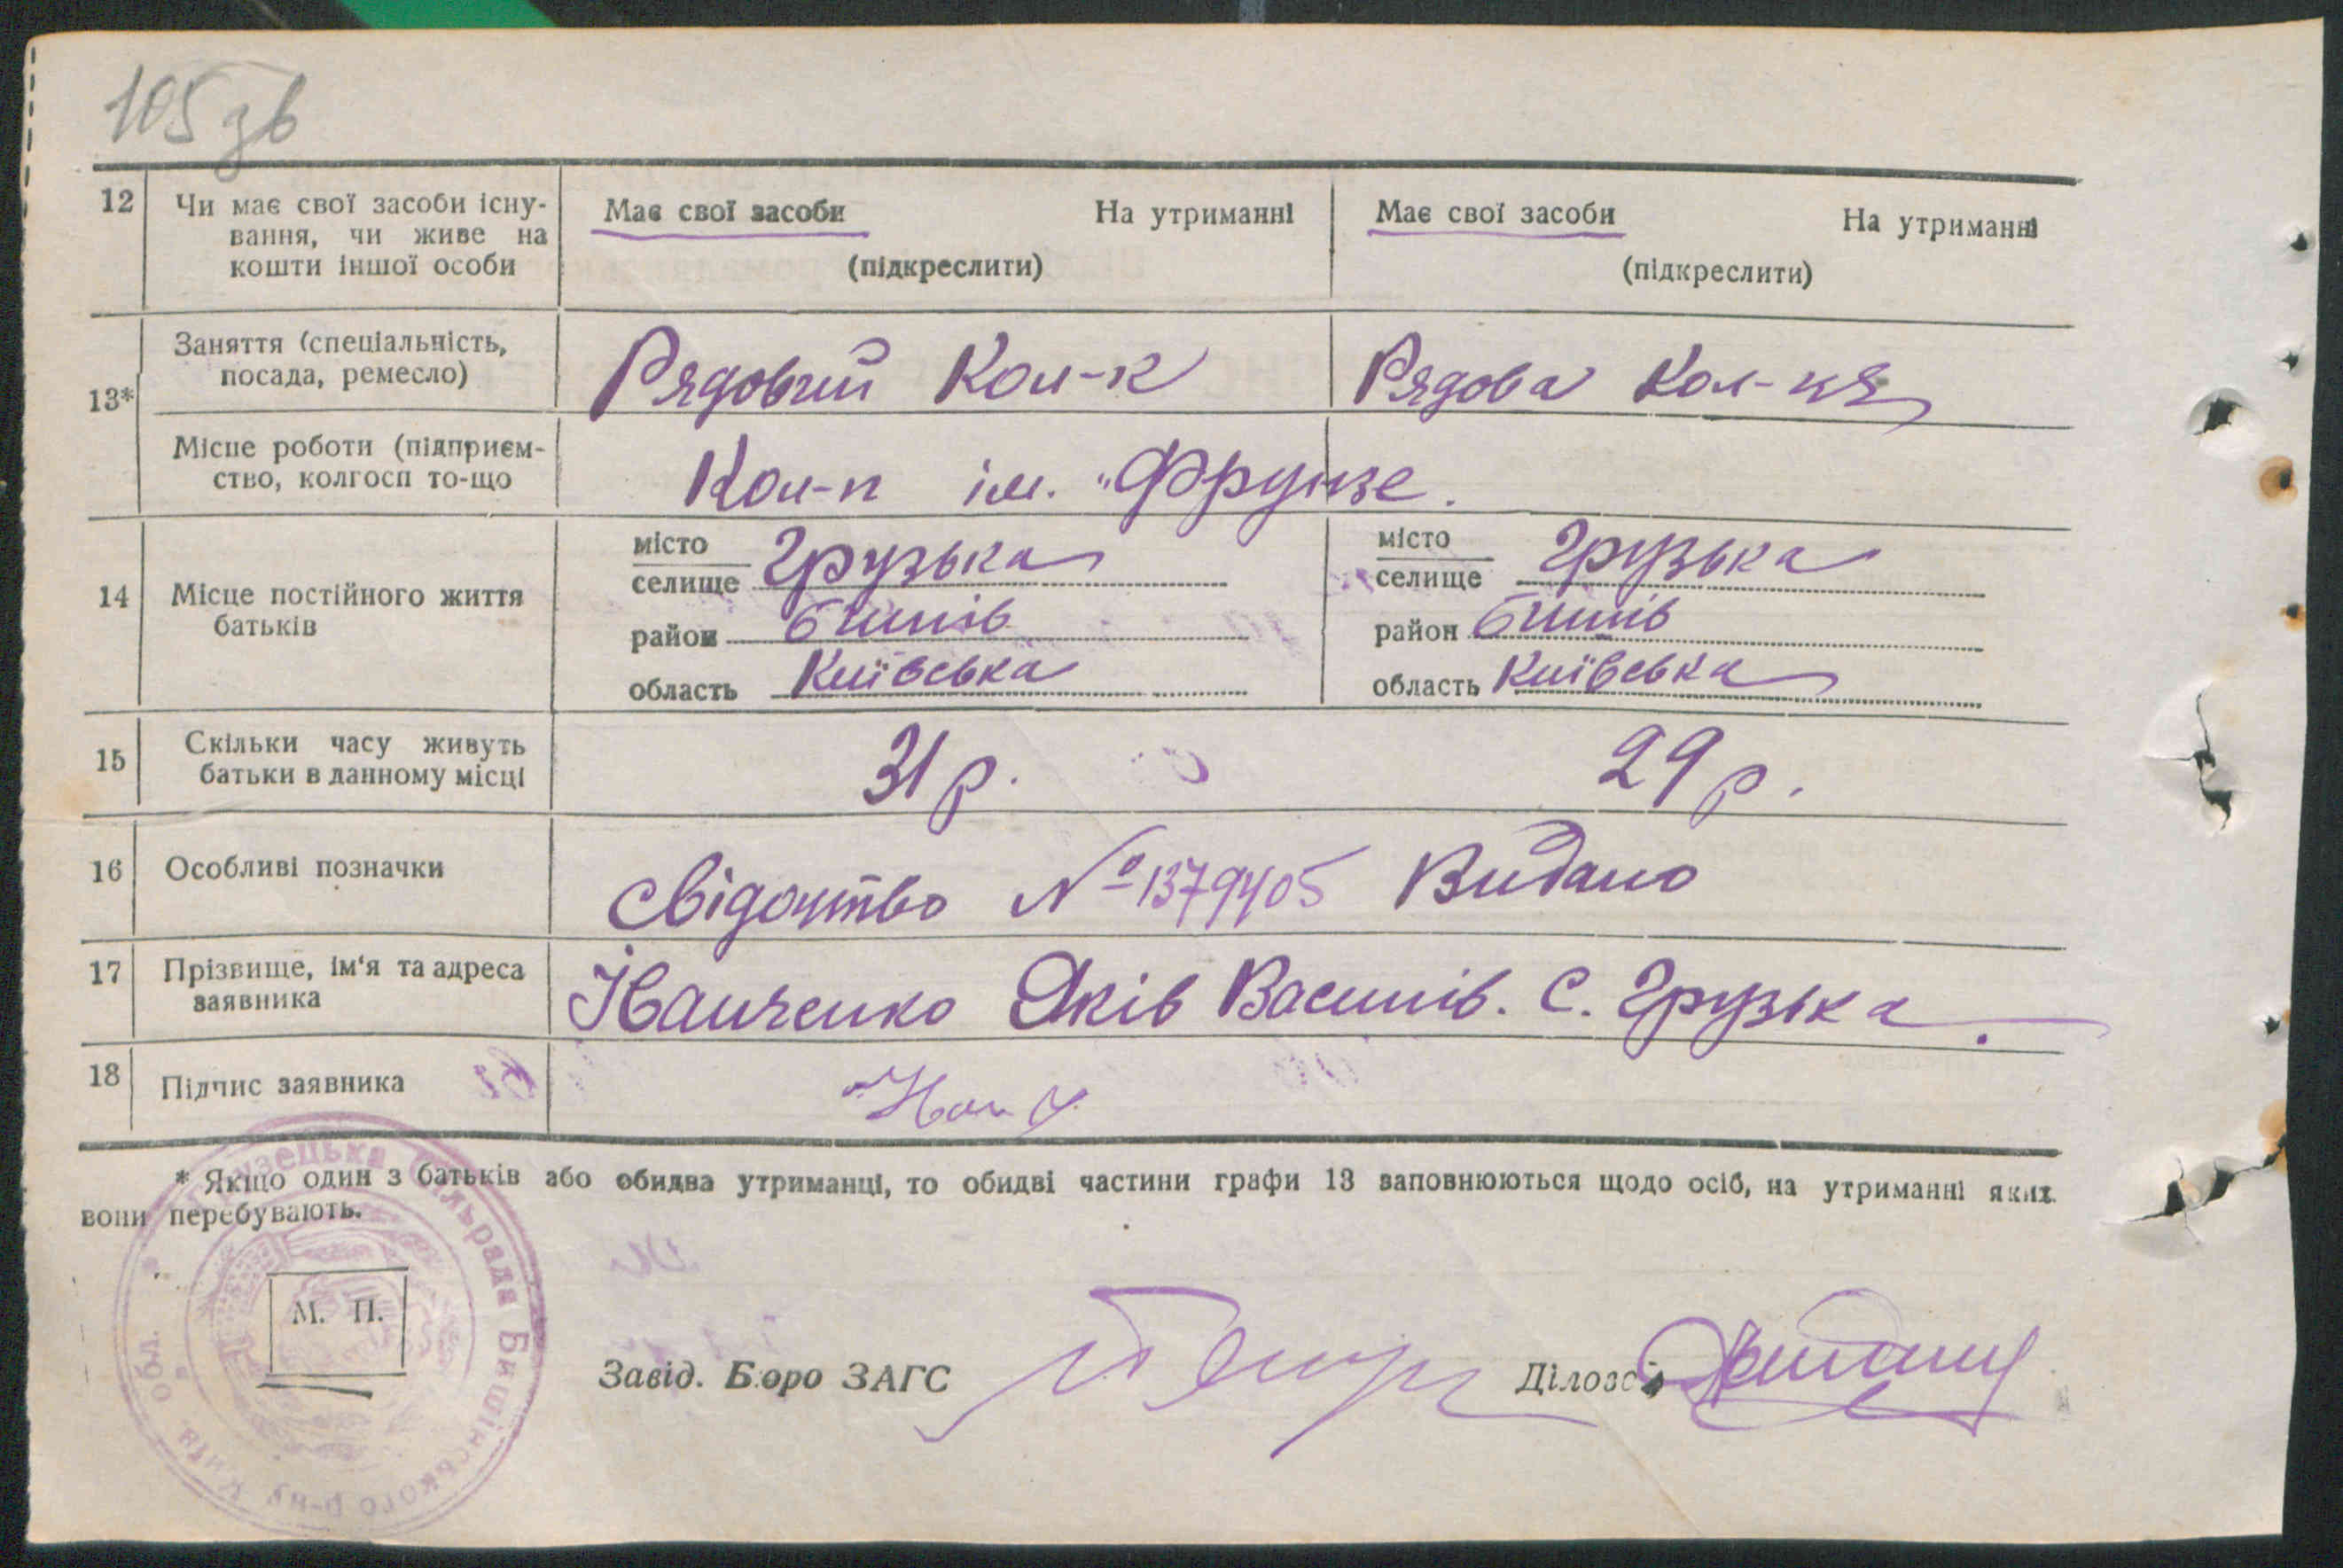 105 зв
12 Чи має свої засоби існу- Має свої засоби На утриманні Має свої засоби На утриманні
вання, чи живе на
кошти іншої особи (підкреслити) (підкреслити)
13* Заняття (спеціальність,
посада, ремесло) Рядовий Кол-к Рядова Кол-ця
Місце роботи (підприєм-
ство, колгосп то-що Кол-п ім. "Фрунзе.
14 Місце постійного життя
батьків
місто
селище Грузька
район Бишів
область Київська
місто
селище Грузька
район Бишів
область Київська
15 Скільки часу живуть
батьки в данному місці 31 р. 29 р.
16 Особливі позначки Свідоцтво № 1379405 Видано
17 Прізвище, ім'я та адреса
заявника Іванченко Яків Василів. С. Грузька.
18 Підпис заявника
* Якщо один з батьків або обидва утриманці, то обидві частини графи 13 заповнюються щодо осіб, на утриманні яких
вони перебувають.
Грузецька сільрада Бишівського р-ну Київ. обл.
М. П.
Завід. Бюро ЗАГС Діловод